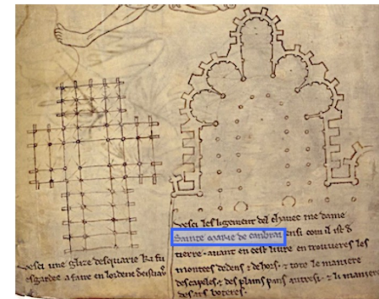 vesci une glize desquarie ki fu
esgardee a faire en lordene de cistiaus
vesci les ligement del chavec me dame
Sainte marie de canbrai ensi com il ist de
tierre · avant en cest livre en troveres les
montees dedens & dehors · & tote le maniere
des capeles & des plains pans autresi · & li maniere
des ars boteres ·